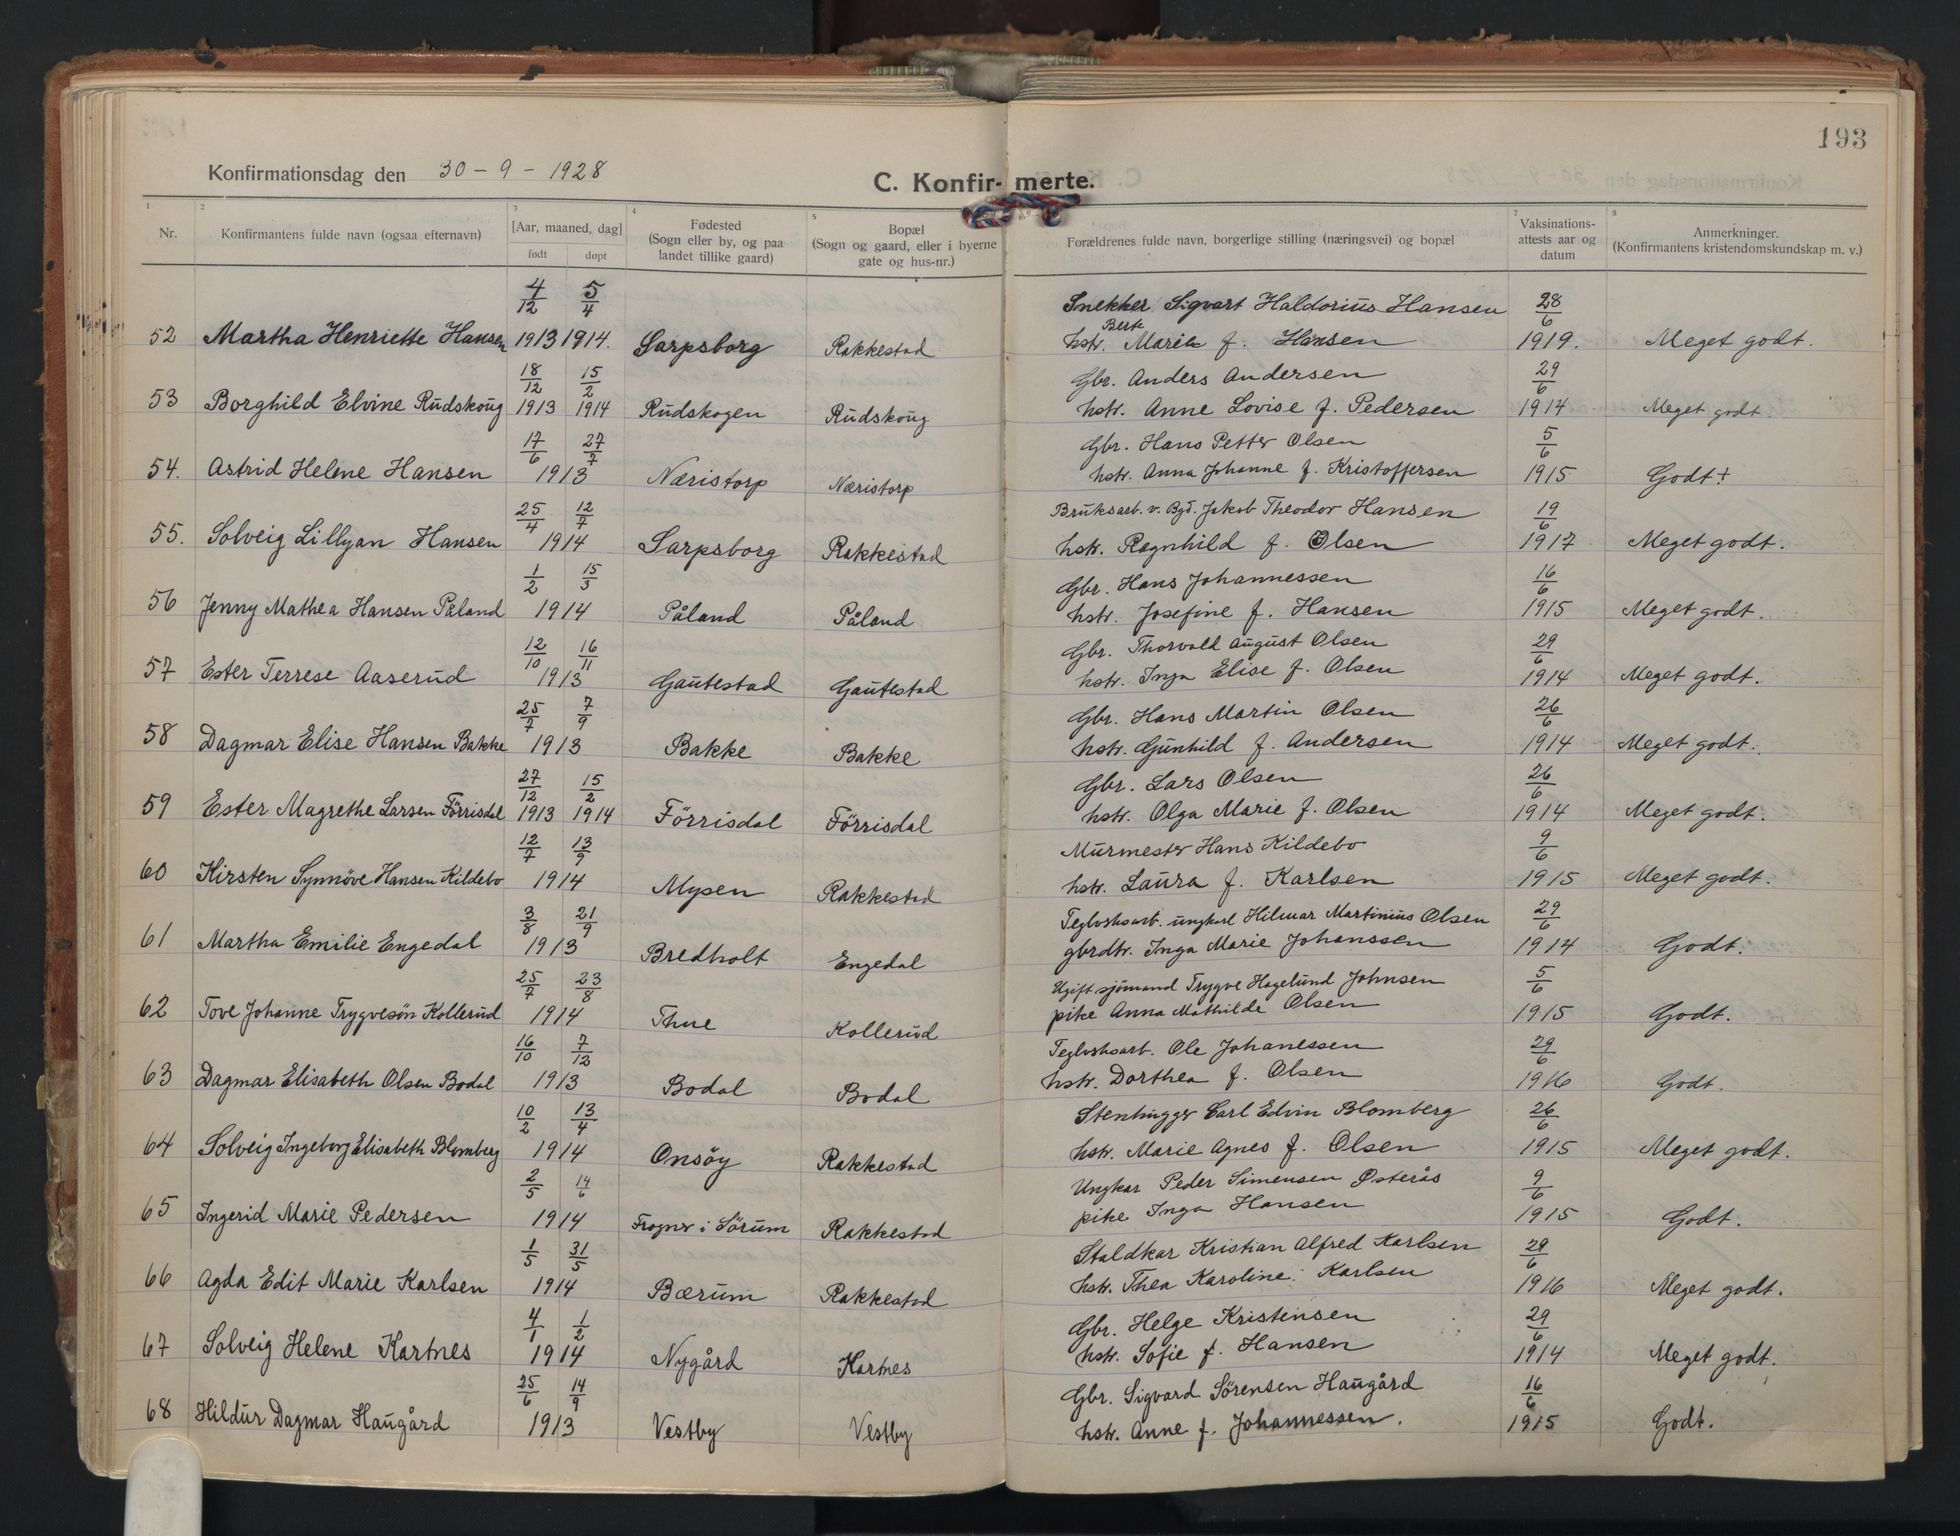 193
Konfirmationsdag den 30 - 9 - 1928
C. Konfir- merte.
1 2 3 4 5 7 8
Nr. Konfirmantens fulde navn (ogsaa efternavn) [Aar, maaned, dag] født døpt Fødested (Sogn eller by, og paa landet tillike gaard) Bopæl (Sogn og gaard, eller i byerne gate og hus-nr.) Forældrenes fulde navn, borgerlige stilling (næringsvei) og bopæl Vaksinations-attests aar og datum Anmerkninger. (Konfirmantens kristendomskundskap m. v.)
4/12 5/4 Snekker Sigvart Haldorius Hansen 28/6
52 Martha Henriette Hansen 1913 1914. Sarpsborg Rakkestad hstr. Berte Marie f. Hansen 1919. Meget godt.
18/12 15/2 Gbr. Anders Andersen 29/6
53 Borghild Elvine Rudskoug 1913 1914 Rudskogen Rudskoug hstr. Anne Lovise f. Pedersen 1914 Meget godt.
17/6 27/7 Gbr. Hans Petter Olsen 5/6
54. Astrid Helene Hansen 1913 Næristorp Næristorp hstr. Anna Johanne f. Kristoffersen 1915 Godt +
25/4 12/7 Bruksarb. v. Bgd. Jakob Theodor Hansen 19/6
55. Solveig Lillyan Hansen 1914 Sarpsborg Rakkestad hstr. Ragnhild f. Olsen 1917 Meget godt.
1/2 15/3 Gbr. Hans Johannessen 16/6
56 Jenny Mathea Hansen Påland 1914 Påland Påland hstr. Josefine f. Hansen 1915 Meget godt.
12/10 16/11 Gbr. Thorvald August Olsen 29/6
57 Ester Terrese Aaserud 1913 Gautestad Gautestad hstr. Inga Elise f. Olsen 1914 Meget godt.
25/7 7/9 Gbr. Hans Martin Olsen 26/6
58 Dagmar Elise Hansen Bakke 1913 Bakke Bakke hstr. Gunhild f. Andersen 1914 Meget godt.
27/12 15/2 Gbr. Lars Olsen 26/6
59 Ester Magrethe Larsen Förrisdal 1913 1914 Förrisdal Förrisdal hstr. Olga Marie f. Olsen 1914 Meget godt.
12/7 13/9 Murmester Hans Kildebo 9/6
60 Kirsten Synnöve Hansen Kildebo 1914 Mysen Rakkestad hstr. Laura f. Karlsen 1915 Meget godt.
3/8 21/9 Teglvshsarb. ungkarl Hilmar Martinius Olsen 29/6
61 Martha Emilie Engedal 1913 Bredholt Engedal gbrdtr. Inga Marie Johanssen 1914 Godt.
25/7 23/8 Ugift sjömand Trygve Hagelund Johnsen 5/6
62 Tove Johanne Trygvesön Kollerud 1914 Thue Kollerud pike Anna Mathilde Olsen 1915 Godt.
16/10 7/12 Teglvshsarb. Ole Johanessen 29/6
63 Dagmar Elisabeth Olsen Bodal 1913 Bodal Bodal hstr. Dorthea f. Olsen 1916 Godt.
10/2 13/4 Stenhugger Carl Edvin Blomberg 26/6
64 Solveig Ingeborg Elisabeth Blomberg 1914 Onsöy Rakkestad hstr. Marie Agnes f. Olsen 1915 Meget godt.
2/5 14/6 Ungkar Peder Simensen Østerås 9/6
65 Ingerid Marie Pedersen 1914 Frogner i Sörum Rakkestad pike Inga Hansen 1915 Godt.
1/5 31/5 Staldkar Kristian Alfred Karlsen 29/6
66 Agda Edit Marie Karlsen 1914 Bærum Rakkestad hstr. Thea Karoline Karlsen 1916 Meget godt.
4/1 1/2 Gbr. Helge Kristensen 29/6
67 Solveig Helene Kartnes 1914 Nygård Kartnes hstr. Sofie f. Hansen 1914 Meget godt.
25/6 14/9 Gbr. Sigvard Sörensen Haugård 16/6
68 Hildur Dagmar Haugård 1913 Vestby Vestby hstr. Anne f. Johannessen. 1915 Godt.